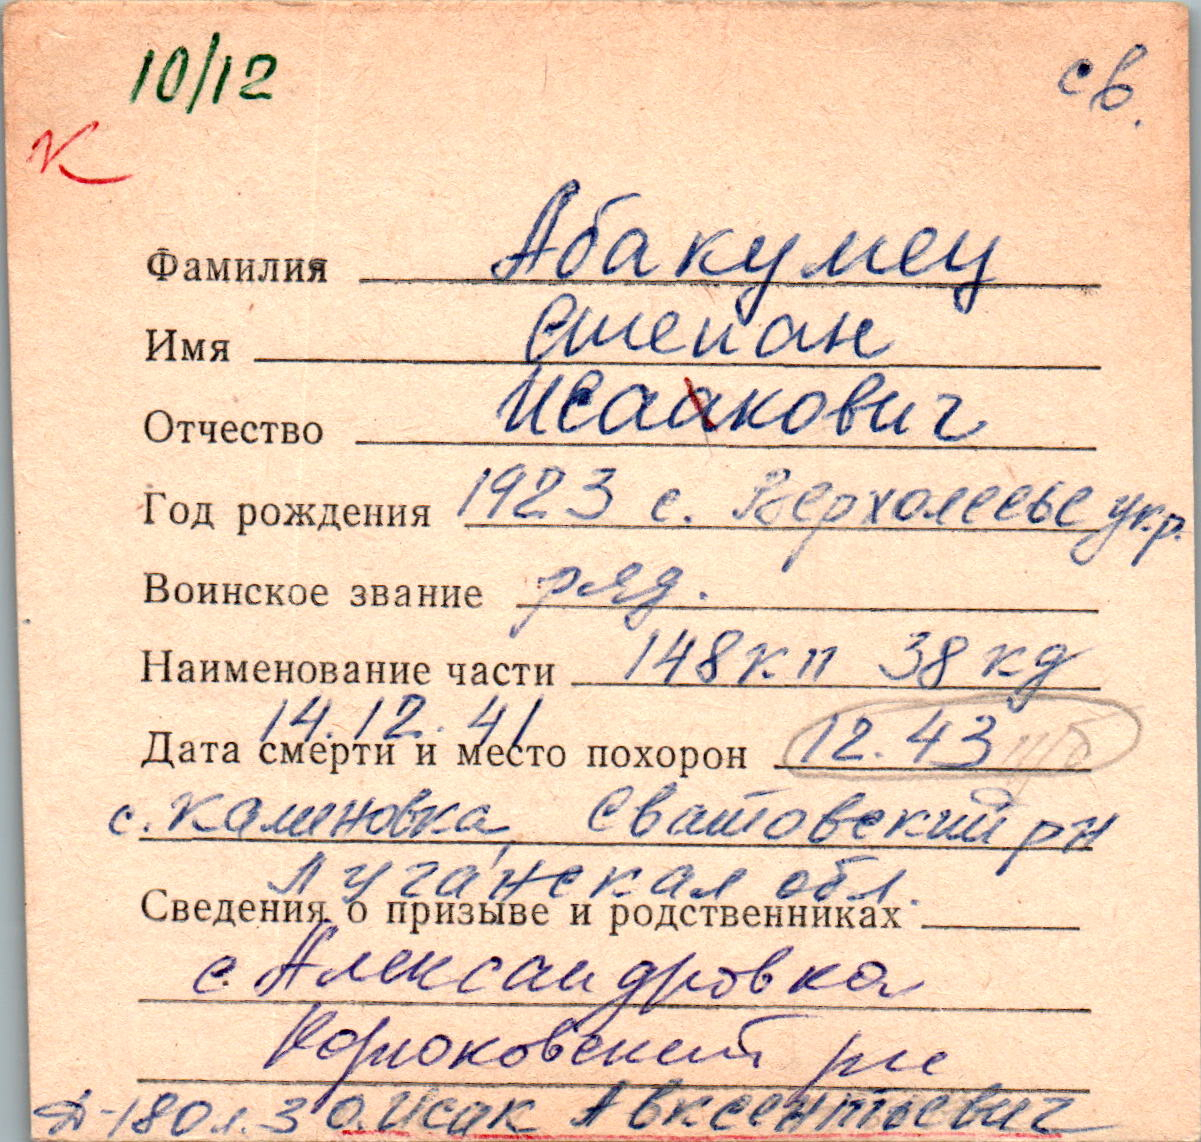 10/12
св.
К
Фамилия Абакумец
Имя Степан
Отчество Исаакович
Год рождения 1923 с. Верхолесье укр.
Воинское звание ряд.
Наименование части 148 кп 38 кд
14.12.41
Дата смерти и место похорон 12.43
с. Калиновка Сватовский р-н
Луганская обл.
Сведения о призыве и родственниках
с. Александровка
Корюковский р-н
Д-180 л. 3 о. Исак Авксентьевич